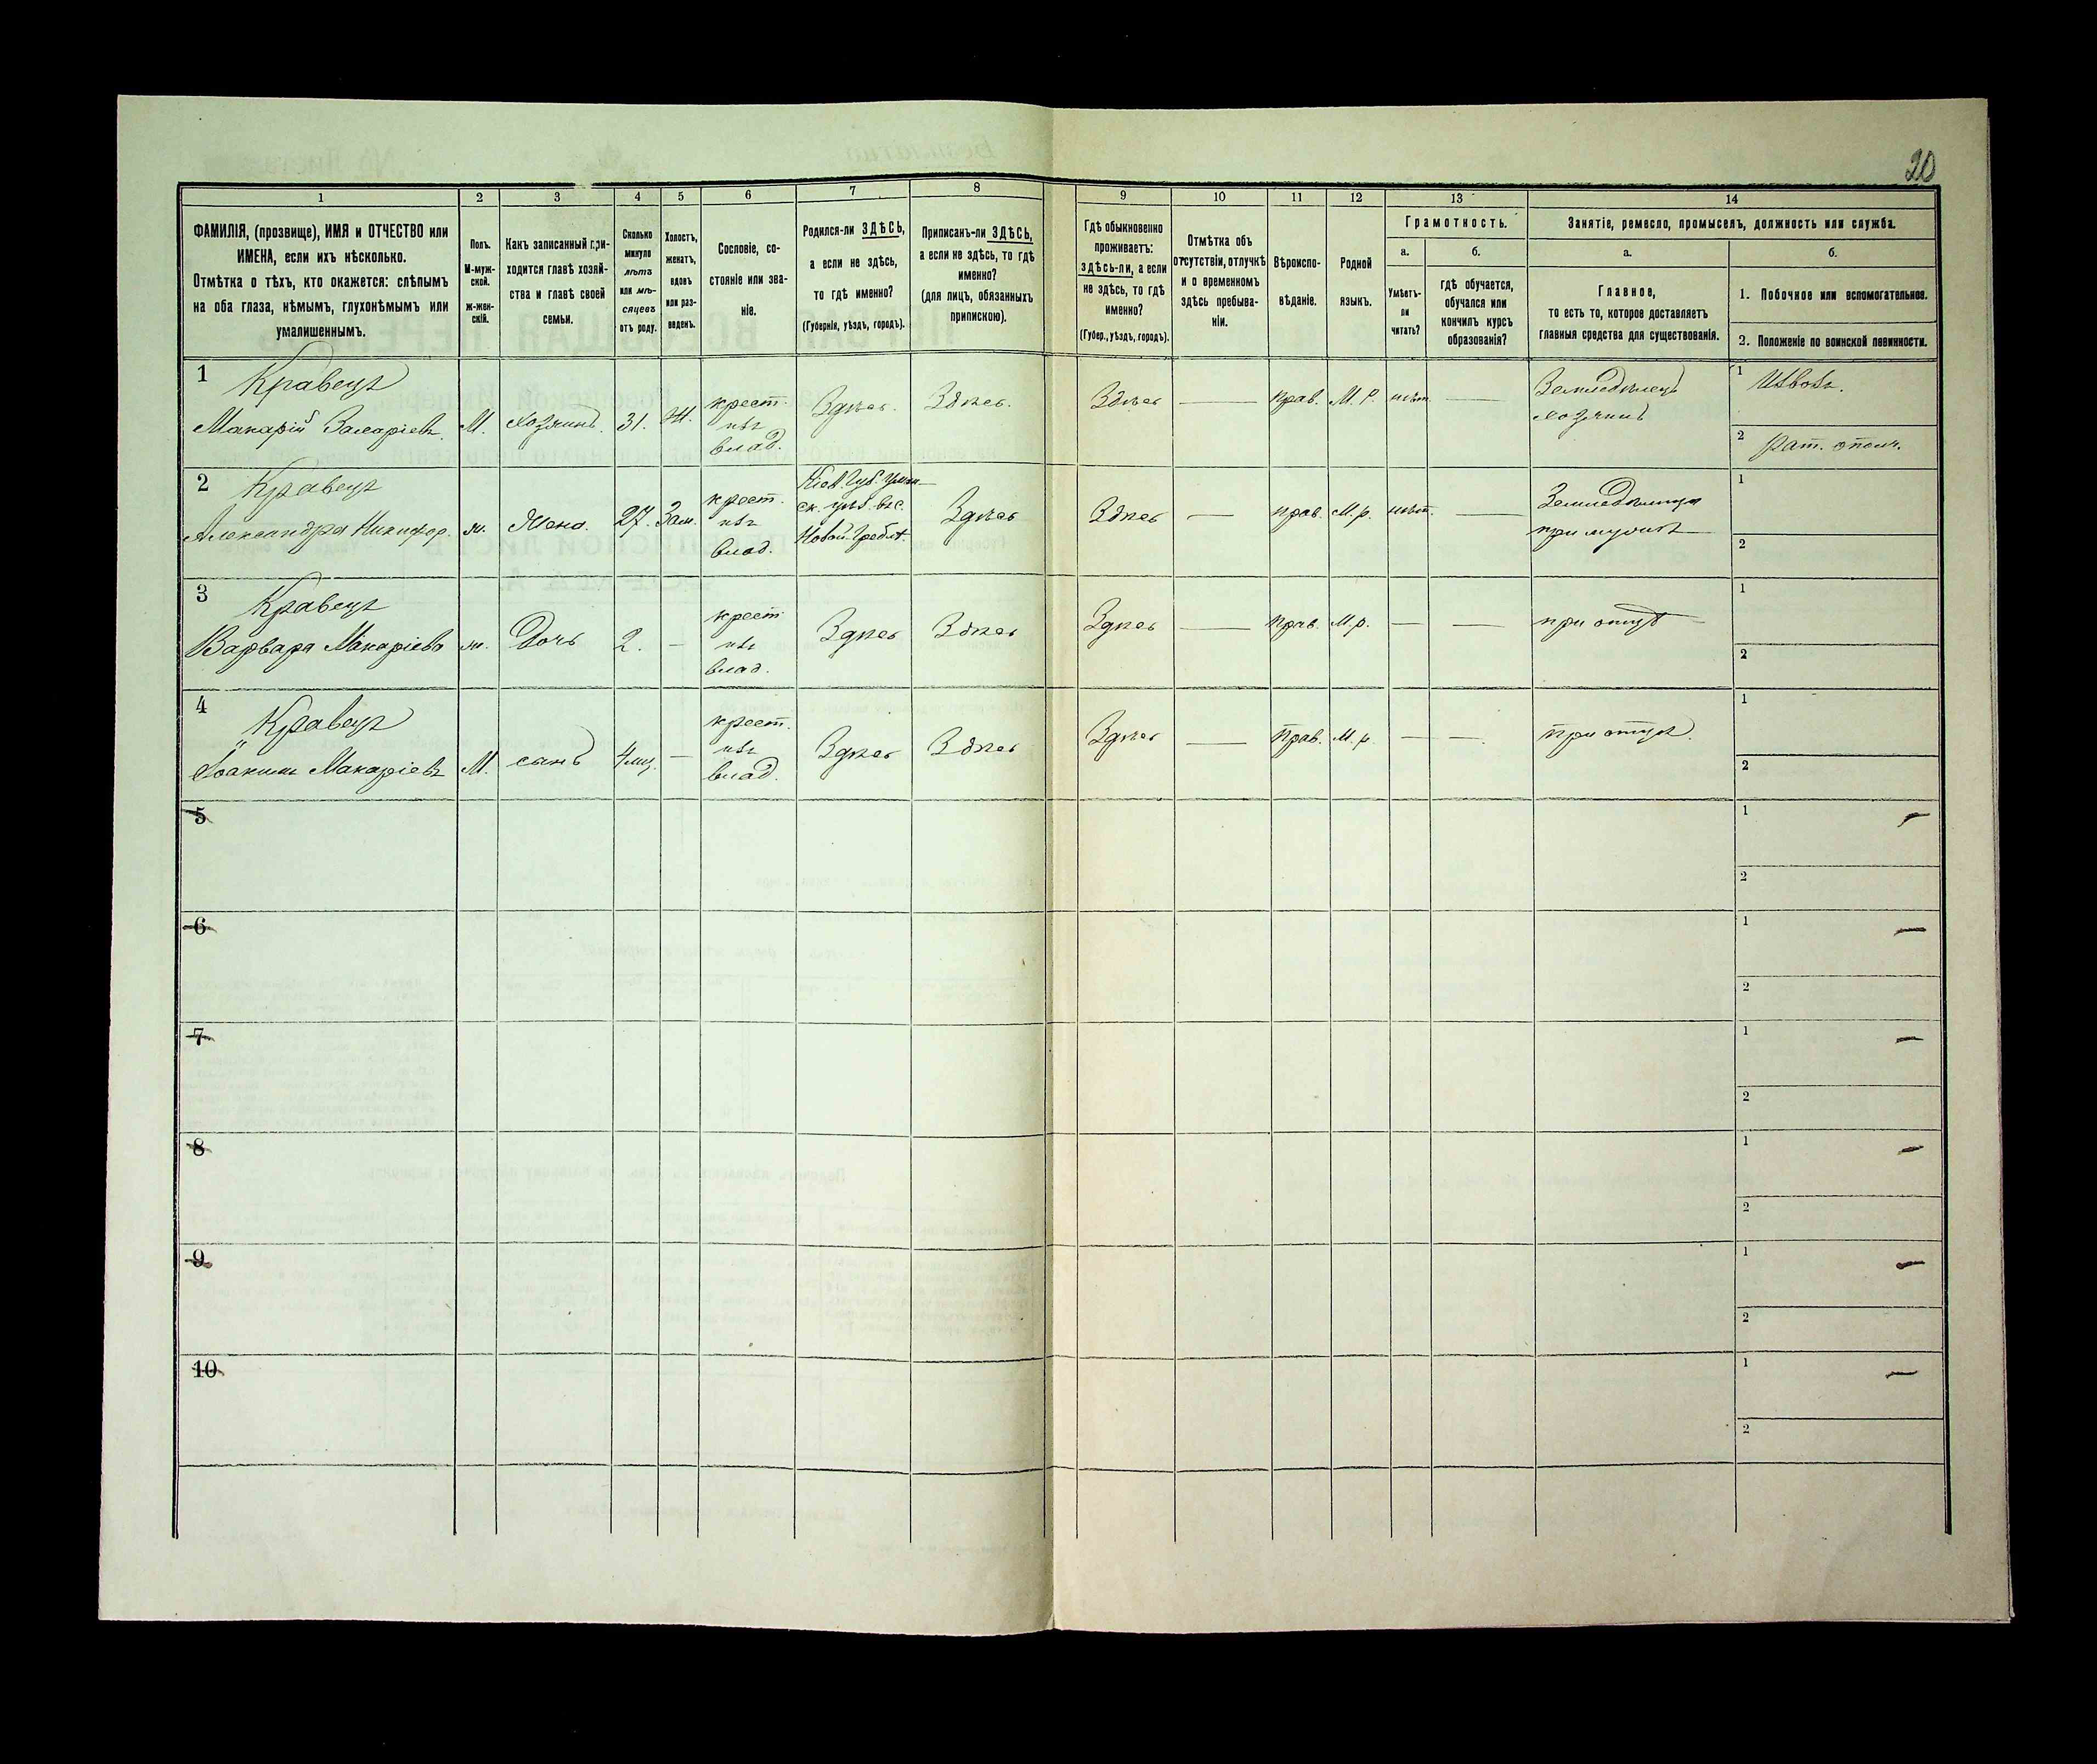 20
1
2
3
4
5
6
7
8
9
10
11
12
13
14
ФАМИЛІЯ, (прозвище), ИМЯ и ОТЧЕСТВО или
ИМЕНА, если ихъ нѣсколько.
Отмѣтка о тѣхъ, кто окажется: слѣпымъ
на оба глаза, нѣмымъ, глухонѣмымъ или
умалишеннымъ.
Полъ.
М-муж-
ской.
ж-жен-
скій.
Какъ записанный при-
ходится главѣ хозяй-
ства и главѣ своей
семьи.
Сколько
минуло
лѣтъ
или мѣ-
сяцевъ
отъ роду.
Холостъ,
женатъ,
вдовъ
или раз-
веденъ.
Сословіе, со-
стояніе или зва-
ніе.
Родился-ли ЗДѢСЬ,
а если не здѣсь,
то гдѣ именно?
(Губернія, уѣздъ, городъ).
Приписанъ-ли ЗДѢСЬ,
а если не здѣсь, то гдѣ
именно?
(для лицъ, обязанныхъ
припискою).
Гдѣ обыкновенно
проживаетъ:
здѣсь-ли, а если
не здѣсь, то гдѣ
именно?
(Губер., уѣздъ, городъ).
Отмѣтка объ
отсутствіи, отлучкѣ
и о временномъ
здѣсь пребыва-
ніи.
Вѣроиспо-
вѣданіе.
Родной
языкъ.
Грамотность.
а.
б.
Умѣетъ-
ли
читать?
гдѣ обучается,
обучался или
кончилъ курсъ
образованія?
Занятіе, ремесло, промыселъ, должность или служба.
а.
б.
Главное,
то есть то, которое доставляетъ
главныя средства для существованія.
1. Побочное или вспомогательное.
2. Положеніе по воинской повинности.
1 Кравецъ
Макарій Захаріевъ. М. хозяинъ. 31. Ж. крест. изъ влад. Здѣсь. Здѣсь. Здѣсь — прав. М. р. нѣтъ — Земледѣлецъ хозяинъ
1 Извозъ.
2 Рат. ополч.
2 Кравецъ
Александра Никифор. ж. Жена. 27. Зам. крест. изъ влад. Кіев. Губ. Уман-
ск. уѣз. въ с.
Новой-Гребл. Здѣсь Здѣсь — прав. М. р. нѣт. — Земледѣлица
при мужѣ
1
2
3 Кравецъ
Варвара Макаріева ж. Дочь 2. — крест изъ влад. Здѣсь Здѣсь Здѣсь — прав. М. р. — — при отцѣ
1
2
4 Кравецъ
Іоакимъ Макаріевъ М. сынъ 4 мц. — крест. изъ влад. Здѣсь Здѣсь Здѣсь — прав. М. р. — — при отцѣ.
1
2
5
1
2
6
1
2
7
1
2
8
1
2
9
1
2
10
1
2